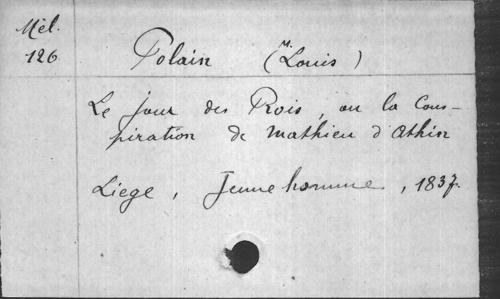 Mél.
126
Polain (M. Louis)
Le jour des Rois, ou la Cons-
piration de Mathieu d'Athin
Liege, Jeunehomme, 1837.